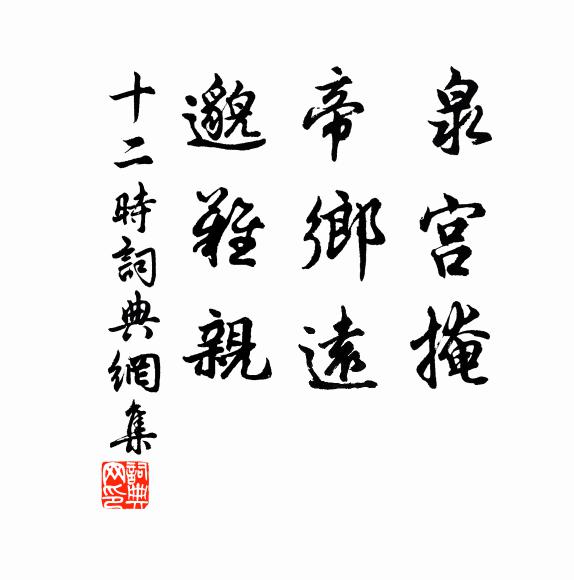 泉宮掩
帝鄉遠
邈難親
十二時詞典網集
詞典
网印